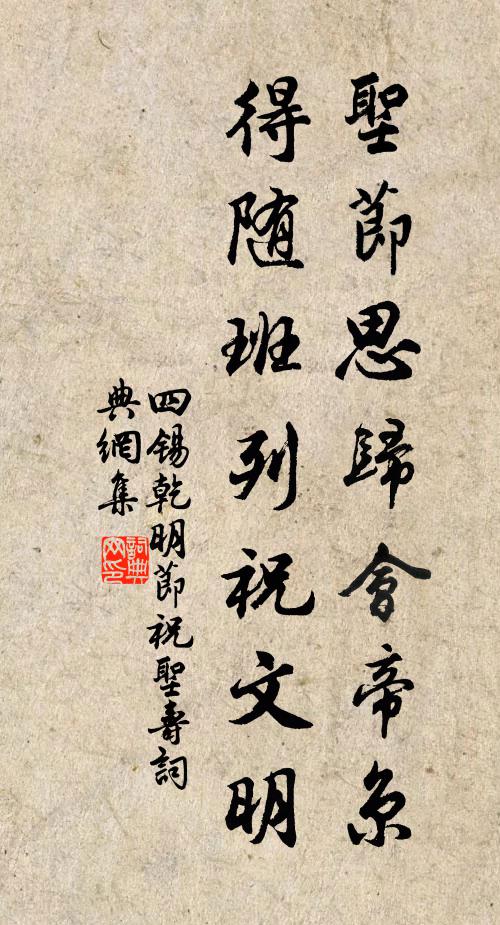 聖節思歸會帝京
得随班列祝文明
四錫乾明節祝聖壽詞
典網集
詞典
网印